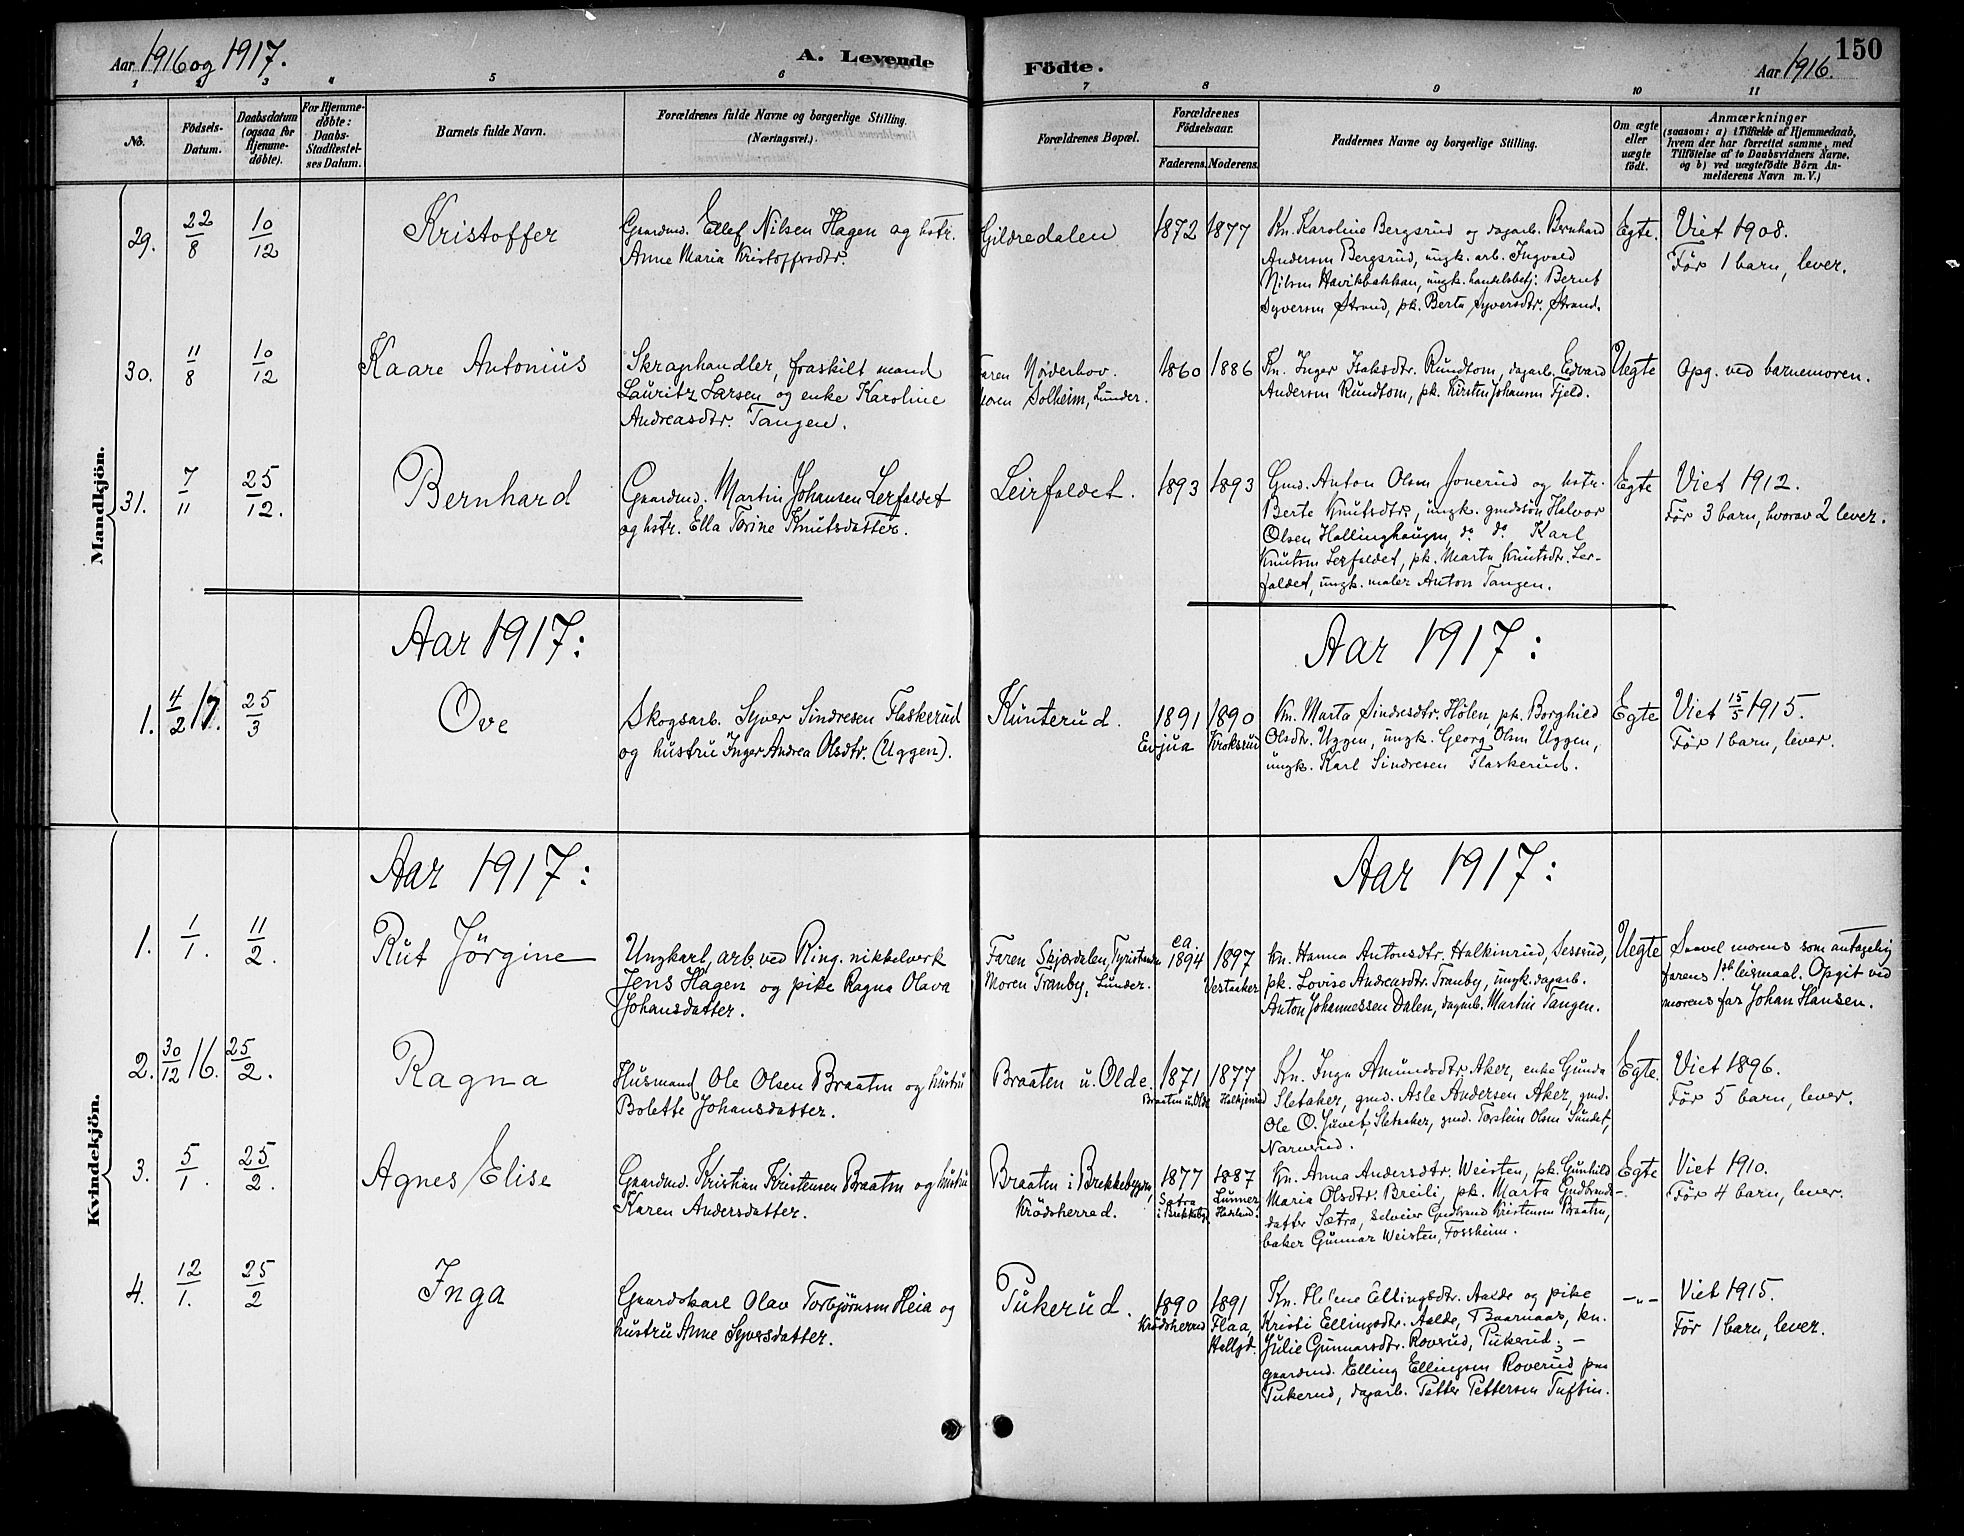 Aar 1916 og 1917.
A. Levende
Födte.
Aar 1916.
150
1 2 3 4 5 6 7 8 9 10 11
No.
Födsels-Datum.
Daabsdatum (ogsaa for Hjemme-döbte).
For Hjemme-döbte: Daabs-Stadfæstel-ses Datum.
Barnets fulde Navn.
Forældrenes fulde Navne og borgerlige Stilling. (Næringsvei.)
Forældrenes Bopæl.
Forældrenes Födselsaar.
Faderens. Moderens.
Faddernes Navne og borgerlige Stilling.
Om ægte eller uægte födt.
Anmærkninger
(saasom: a) i Tilfælde af Hjemmedaab,
hvem der har forrettet samme, med
Tilföielse af to Daabsvidners Navne.
og b) ved uægtefödte Börn An-
melderens Navn m. V.)
Mandkjön.
29. 22/8 10/12 Kristoffer
Gaardmd. Ellef Nilsen Hagen og hstr.
Anne Maria Kristoffersdtr.
Gildredalen 1872 1877
Kn. Karoline Bergsrud og dagarb. Bernhard
Andersen Bergsrud, ungk. arb. Ingvald
Nilsen Havikbakken, ungk. handelsbetj. Bernt
Syversen Strand, pk. Berta Syversdtr. Strand.
Egte.
Viet 1908.
Før 1 barn, lever.
30. 11/8 10/12 Kaare Antonius
Skraphandler, fraskilt mand
Lauritz Larsen og enke Karoline
Andreasdtr. Tangen.
Faren Norderhov.
Moren Solheim, Lunder.
1860 1886
Kn. Inger Isaksdtr. Rundtom, dagarb. Edvard
Andersen Rundtom, pk. Kirsten Johansen Fjeld.
Uegte
Opg. ved barnemoren.
31. 7/11 25/12. Bernhard
Gaardmd. Martin Johansen Lerfaldet
og hstr. Ella Torine Knutsdatter.
Leirfaldet. 1893 1893
Gmd. Anton Olsen Jonerud og hstr.
Berte Knutsdtr., ungk. gmdssøn Halvor
Olsen Hallinghaugen, do. do. Karl
Knutsen Lerfaldet, pk. Marta Knutsdtr. Ler-
faldet, ungk. maler Anton Tangen.
Egte
Viet 1912.
Før 3 barn, hvorav 2 lever.
Aar 1917:
Aar 1917:
1. 4/2 17. 25/3 Ove
Skogsarb. Syver Sindresen Flaskerud
og hustru Inger Andrea Olsdtr. (Uggen).
Kunterud.
1891 Evjua
1890 Kroksrud
Kn. Marta Sindresdtr. Hølen, pk. Borghild
Olsdtr. Uggen, ungk. Georg Olsen Uggen,
ungk. Karl Sindresen Flaskerud.
Egte
Viet 15/5 1915.
Før 1 barn, lever.
Kvindekjön.
Aar 1917:
Aar 1917:
1. 1/1. 11/2. Rut Jörgine
Ungkarl, arb. ved Ring. nikkelverk
Jens Hagen og pike Ragna Olava
Johansdatter.
Faren Skjærdalen, Tyristrand
Moren Tranby, Lunder.
ca 1894
1897 Vestaaker
Kn. Hanna Antonsdtr. Halkinrud, Sessrud,
pk. Lovise Andreasdtr. Tranby, ungk. dagarb.
Anton Johannessen Dalen, dagarb. Martin Tangen.
Uegte
Saavel morens som antagelig
farens 1ste leiermaal. Opgit ved
morens far Johan Hansen.
2. 30/12 16. 25/2. Ragna
Husmand Ole Olsen Braaten og hustru
Bolette Johansdatter.
Braaten u. Olde.
1871 Braaten u. Olde
1877
Kn. Inga Amundsdtr. Aker, enke Gunda
Sletaker, gmd. Asle Andersen Aker, gmd.
Ole O. Juvet, Sletaaker, gmd. Torstein Olsen Sundet,
Narverud.
Egte.
Viet 1896.
Før 5 barn, lever.
3. 5/1. 25/2. Agnes Elise
Gaardmd. Kristian Kristensen Braaten og hustru
Karen Andersdatter.
Braaten i Brekkebygden,
Krødsherred.
1877 Sætra i Brekkebygd
1887 Lunner Hadeland.
Kn. Anna Andersdtr. Weisten, pk. Gunhild
Maria Olsdtr. Breili, pk. Marta Gudbrands-
datter Sætra, selveier Gudbrand Kristensen Braaten,
baker Gunnar Weisten, Fossheim.
Egte
Viet 1910.
Før 4 barn, lever.
4. 12/1. 25/2 Inga
Gaardskarl Olav Torbjørnsen Heia og
hustru Anne Syversdatter.
Pukerud.
1890 Krødsherred
1891 Flaa, Hallgd.
Kn. Helene Ellingsdtr. Aalde og pike
Kristi Ellingsdtr. Aalde, Baarnaas, kn.
Julie Gunnarsdtr. Roverud, Pukerud, –
gaardmd. Elling Ellingsen Roverud paa
Pukerud, dagarb. Petter Pettersen Tuftin.
–"–
Viet 1915.
Før 1 barn, lever.